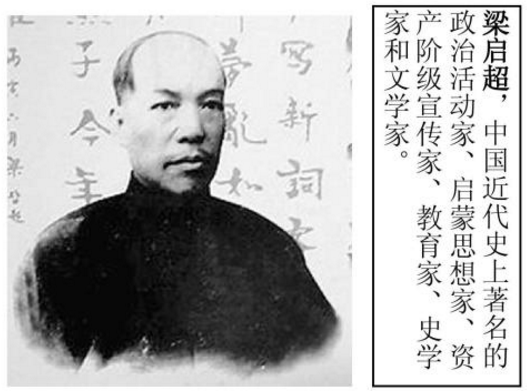 梁启超，中国近代史上著名的
政治活动家、启蒙思想家、资
产阶级宣传家、教育家、史学
家和文学家。
寫新詞
亂如
子今年